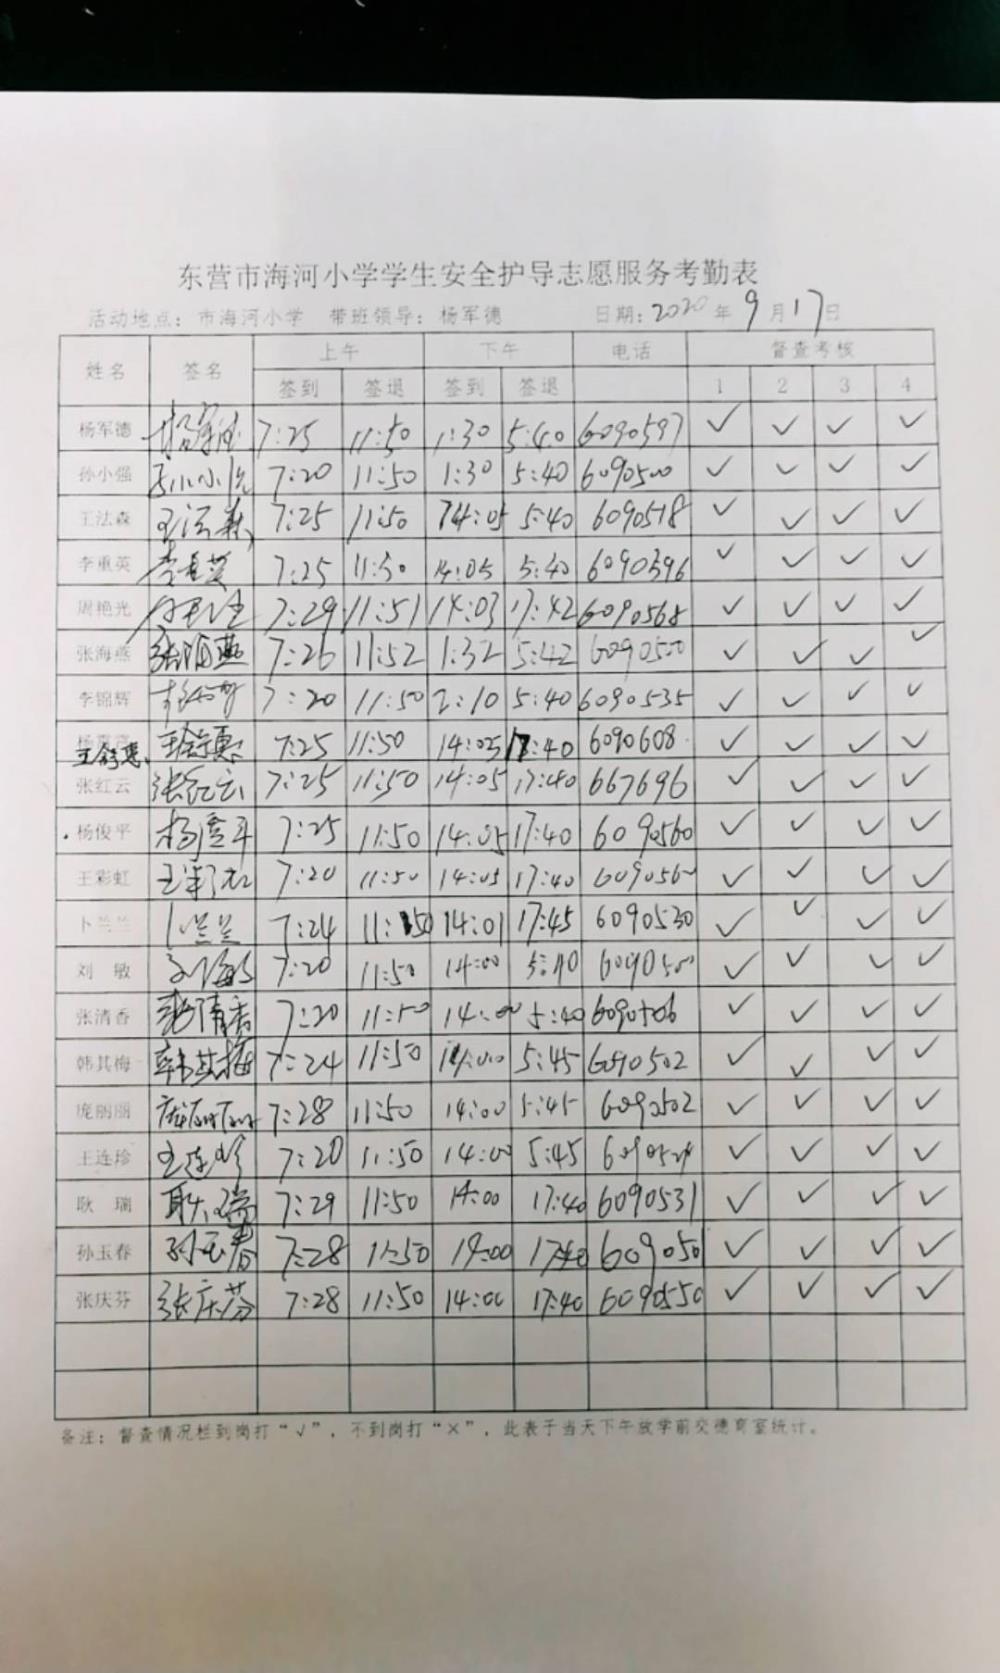 东营市海河小学学生安全护导志愿服务考勤表
活动地点：市海河小学 带班领导：杨军德 日期：2020年9月17日
姓名 签名 上午 下午 电话 督查考核
签到 签退 签到 签退 1 2 3 4
杨军德 杨军德 7:25 11:50 1:30 5:40 6090597 ✓ ✓ ✓ ✓
孙小强 孙小强 7:20 11:50 1:30 5:40 6090500 ✓ ✓ ✓ ✓
王法森 王法森 7:25 11:50 14:05 5:40 6090518 ✓ ✓ ✓ ✓
李重英 李重英 7:25 11:50 14:05 5:40 6090596 ✓ ✓ ✓ ✓
周艳光 7:29 11:51 14:03 17:42 6090568 ✓ ✓ ✓ ✓
张海燕 张海燕 7:26 11:52 1:32 5:42 6090500 ✓ ✓ ✓ ✓
李锦辉 7:20 11:50 2:10 5:40 6090535 ✓ ✓ ✓ ✓
7:25 11:50 14:05 17:40 6090608 ✓ ✓ ✓ ✓
张红云 张红云 7:25 11:50 14:05 17:40 667696 ✓ ✓ ✓ ✓
杨俊平 7:25 11:50 14:05 17:40 6090560 ✓ ✓ ✓ ✓
王彩虹 王彩虹 7:20 11:50 14:05 17:40 6090560 ✓ ✓ ✓ ✓
卜兰兰 卜兰兰 7:24 11:50 14:01 17:45 6090530 ✓ ✓ ✓ ✓
刘 敏 刘敏 7:20 11:50 14:00 5:40 6090500 ✓ ✓ ✓ ✓
张清香 张清香 7:20 11:50 14:00 5:40 6090506 ✓ ✓ ✓ ✓
韩其梅 韩其梅 7:24 11:50 14:00 5:45 6090502 ✓ ✓ ✓ ✓
庞丽丽 庞丽丽 7:28 11:50 14:00 5:45 6090502 ✓ ✓ ✓ ✓
王连珍 王连珍 7:20 11:50 14:00 5:45 ✓ ✓ ✓ ✓
耿 瑞 耿瑞 7:29 11:50 14:00 17:40 6090531 ✓ ✓ ✓ ✓
孙玉春 孙玉春 7:28 11:50 14:00 17:40 609050 ✓ ✓ ✓ ✓
张庆芬 张庆芬 7:28 11:50 14:00 17:40 6090550 ✓ ✓ ✓ ✓
备注：督查情况栏到岗打“√”，不到岗打“×”，此表于当天下午放学前交德育室统计。